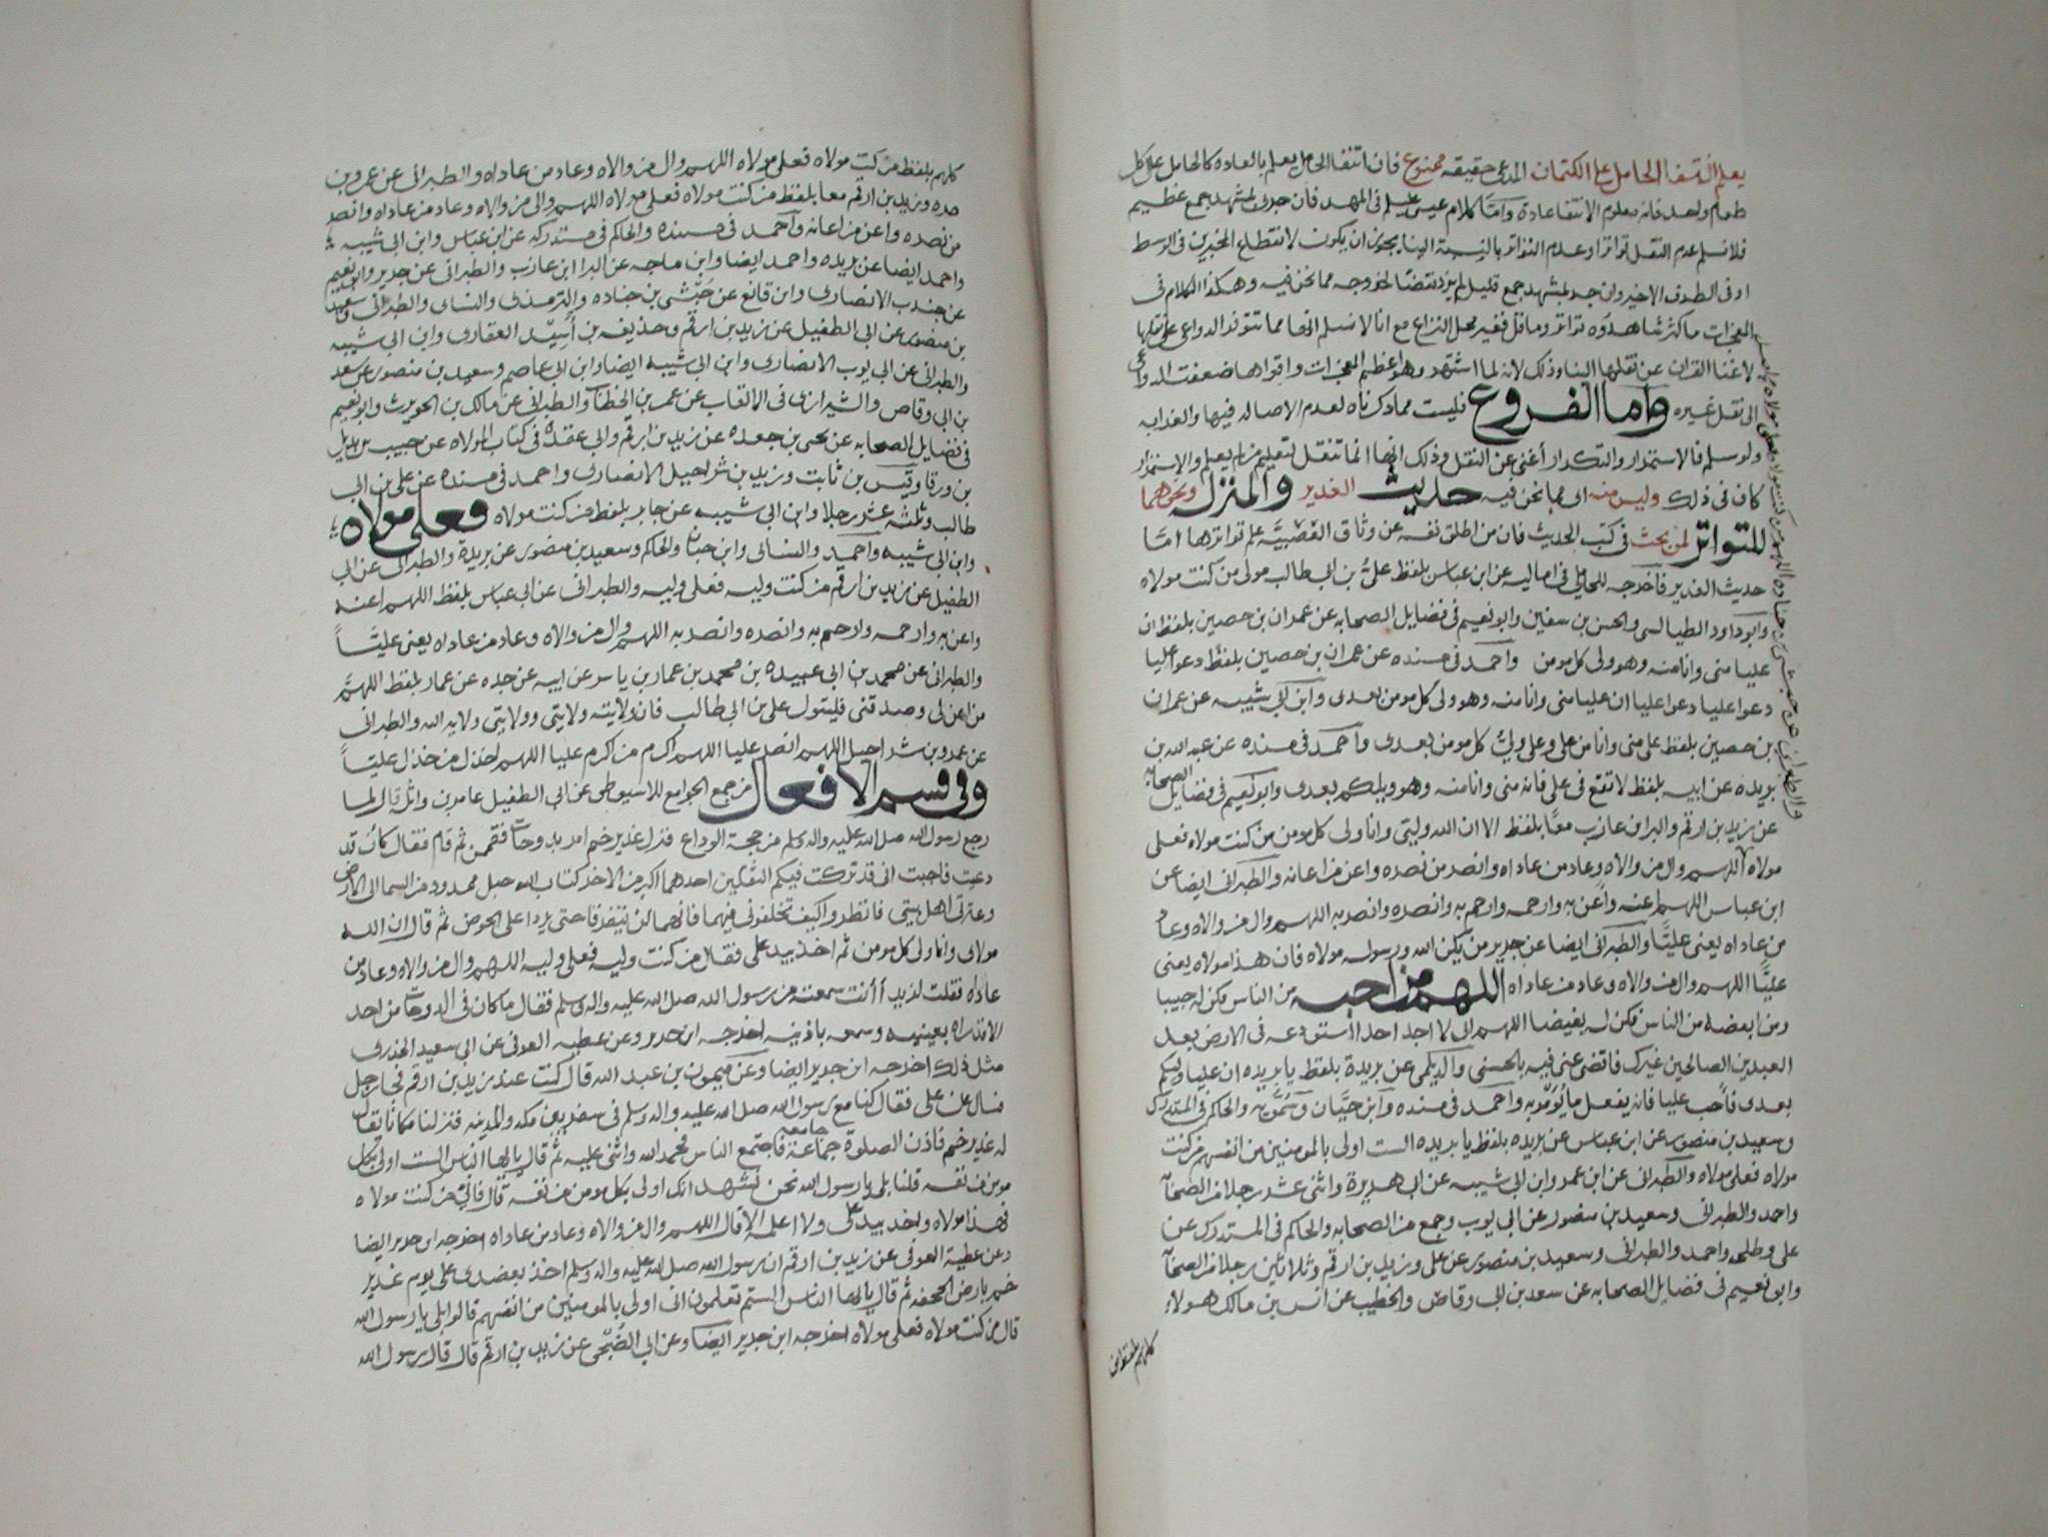 يعلم انتفا الحامل على الكتمان المدعى حقيقه ممنوع فان انتفا الحامل يعلم بالعادة كالحامل على اكل
طعام واحد فانه معلوم الانتفا عادة واما كلام عيسى عليلم فى المهد فان جرى بمشهد جمع عظيم
فلا نسلم عدم النقل تواترا وعدم التواتر بالنسبة الينا يجوز ان يكون لانقطاع المخبرين فى الوسط
او فى الطرف الاخير وان جرى بمشهد جمع قليل لم يرد نقضا لخروجه مما نحن فيه وهكذا الكلام فى
المعجزات ما كثر شاهدوه تواتر وما قل فغير محل النزاع مع انا لا نسلم انها مما تتوفر الدواعى على نقلها
لاغنا القران عن نقلها الينا وذلك لانه لما اشتهر وهو اعظم المعجزات واقواها ضعفت الدواعى
الى نقل غيره واما الفروع فليست مما ذكرناه لعدم الاصاله فيها والغرابه
ولو سلم فالاستمرار والتكرار أغنى عن النقل وذلك انها انما تنقل لتعليم من لم يعلم والاستمرار
كان فى ذلك وليس منه اى مما نحن فيه حديث الغدير والمنزله ونحوهما
للتواتر لمن بحث فى كتب الحديث فان من اطلق نفسه عن وثاق العصبيّه علم تواترها امّا
حديث الغدير فاخرجه المحاملى فى اماليه عن ابن عباس بلفظ علىّ بن ابى طالب مولى من كنت مولاه
وابو داود الطيالسى والحسن بن سفين وابو نعيم فى فضايل الصحابه عن عمران بن حصين بلفظ ان
عليا منى وانا منه وهو ولى كل مومن واحمد فى مسنده عن عمران بن حصين بلفظ دعوا عليا
دعوا عليا دعوا عليا ان عليا منى وانا منه وهو ولى كل مومن بعدى وابن ابى شيبه عن عمران
بن حصين بلفظ على منى وانا من على وعلى ولىّ كل مومن بعدى واحمد فى مسنده عن عبد الله بن
بريده عن ابيه بلفظ لا تقع فى على فانه منى وانا منه وهو وليكم بعدى وابو نعيم فى فضايل الصحابه
عن زيد بن ارقم والبرا بن عازب معًا بلفظ الا ان الله وليّى وانا ولى كل مومن من كنت مولاه فعلى
مولاه اللهم وال من والاه وعاد من عاداه وانصر من نصره واعن من اعانه والطبرانى ايضا عن
ابن عباس اللهم اعنه واعن به وارحمه وارحم به وانصره وانصر به اللهم وال من والاه وعاد
من عاداه يعنى عليًّا والطبرانى ايضا عن جرير من يكن الله ورسوله مولاه فان هذا مولاه يعنى
عليًّا اللهم وال من والاه وعاد من عاداه اللهم من احبه من الناس فكن له حبيبا
ومن ابغضه من الناس فكن له بغيضا اللهم انى لا اجد احدا استودعه فى الارض بعد
العبدين الصالحين غيرك فاقض عنى فيه بالحسنى والديلمى عن بريدة بلفظ يا بريده ان عليا وليكم
بعدى فأحب عليا فانه يفعل ما يُؤمر به واحمد فى مسنده وابن حبّان وسمّويه والحاكم فى المستدرك
وسعيد بن منصور عن ابن عباس عن بريده بلفظ يا بريده الست اولى بالمومنين من انفسهم من كنت
مولاه فعلى مولاه والطبرانى عن ابن عمر وابن ابى شيبه عن ابى هريرة واثنى عشر رجلا من الصحابه
واحمد والطبرانى وسعيد بن منصور عن ابى ايوب وجمع من الصحابه والحاكم فى المستدرك عن
على وطلحه واحمد والطبرانى وسعيد بن منصور عن على وزيد بن ارقم وثلاثين رجلا من الصحابه
وابو نعيم فى فضايل الصحابه عن سعد بن ابى وقاص والخطيب عن انس بن مالك هولاء
كلهم بلفظ من
كلهم بلفظ من كنت مولاه فعلى مولاه اللهم وال من والاه وعاد من عاداه والطبرانى عن عمرو بن
مره وزيد بن ارقم معا بلفظ من كنت مولاه فعلى مولاه اللهم وال من والاه وعاد من عاداه وانصر
من نصره واعن من اعانه وآحمد فى مسنده والحاكم فى مستدركه عن ابن عباس وابن ابى شيبه
واحمد ايضا عن بريده واحمد ايضا وابن ماجه عن البرا ابن عازب والطبرانى عن جرير وابو نعيم
عن جندب الانصارى وابن قانع عن حبشى بن جناده والترمذى والنساى والطبرانى وسعيد
بن منصور عن ابى الطفيل عن زيد بن ارقم وحذيفه بن أسِيد الغفارى وابن ابى شيبه
والطبرانى عن ابى ايوب الانصارى وابن ابى شيبه ايضا وابن ابى عاصم وسعيد بن منصور عن سعد
بن ابى وقاص والشيرازى فى الالقاب عن عمر بن الخطاب والطبرانى عن مالك بن الحويرث وابو نعيم
فى فضايل الصحابه عن يحيى بن جعده عن زيد بن ارقم وابن عقده فى كتاب الموالاه عن حبيب بن بديل
بن ورقا وقيس بن ثابت وزيد بن شراحيل الانصارى واحمد فى مسنده عن على بن ابى
طالب وثلثه عشر رجلا وابن ابى شيبه عن جابر بلفظ من كنت مولاه فعلى مولاه
وابن ابى شيبه واحمد والنسائى وابن حبان والحاكم وسعيد بن منصور عن بريدة والطبرانى عن ابى
الطفيل عن زيد بن ارقم من كنت وليه فعلى وليه والطبرانى عن ابى عباس بلفظ اللهم اعنه
واعن به وارحمه وارحم به وانصره وانصر به اللهم وال من والاه وعاد من عاداه يعنى عليًّا
والطبرانى عن محمد بن ابى عبيده بن محمد بن عمار بن ياسر عن ابيه عن جده عن عمار بلفظ اللهمّ
من امن بى وصدقنى فليتول على بن ابى طالب فان ولايته ولايتى وولايتى ولايه الله والطبرانى
عن عمرو بن شراحيل اللهم انصر عليا اللهم اكرم من اكرم عليا اللهم اخذل من خذل عليًّا
وفى قسم الافعال من جمع الجوامع للاسيوطى عن ابى الطفيل عامر بن واثله قال لما
رجع رسول الله صلى الله عليه واله وسلم من حجة الوداع فنزل غدير خم امر بدوحات فقممن ثم قام فقال كأن قد
دعيت فاجبت انى قد تركت فيكم الثقلين احدهما اكبر من الاخر كتاب الله حبل ممدود من السما الى الارض
وعترتى اهل بيتى فانظروا كيف تخلفونى فيهما فانهما لن يتفرقا حتى يردا على الحوض ثم قال ان الله
مولاى وانا ولى كل مومن ثم اخذ بيد على فقال من كنت وليه فعلى وليه اللهم وال من والاه وعاد من
عاداه فقلت لزيد أأنت سمعته من رسول الله صلى الله عليه واله وسلم فقال ما كان فى الدوحات من احد
الا قد راه بعينيه وسمعه باذنيه اخرجه ابن جرير وعن عطيه العوفى عن ابى سعيد الخدرى
مثل ذلك اخرجه ابن جرير ايضا وعن ميمون بن عبد الله قال كنت عند زيد بن ارقم فجا رجل
فسال عن على فقال كنا مع رسول الله صلى الله عليه واله وسلم فى سفر بين مكه والمدينه فنزلنا مكانا يقال
له غدير خم فاذن الصلوة جامعه فاجتمع الناس فحمد الله واثنى عليه ثم قال يا ايها الناس الست اولى بكل
مومن من نفسه قلنا بلى يا رسول الله نحن نشهد انك اولى بكل مومن من نفسه قال فانى من كنت مولاه
فهذا مولاه واخذ بيد على ولا اعلمه الا قال اللهم وال من والاه وعاد من عاداه اخرجه ابن جرير ايضا
وعن عطية العوفى عن زيد بن ارقم ان رسول الله صلى الله عليه واله وسلم اخذ بعضدى على يوم غدير
خم بارض الجحفه ثم قال يا ايها الناس الستم تعلمون انى اولى بالمومنين من انفسهم قالوا بلى يا رسول الله
قال من كنت مولاه فعلى مولاه اخرجه ابن جرير ايضا وعن ابى الضُّحَى عن زيد بن ارقم قال قال رسول الله